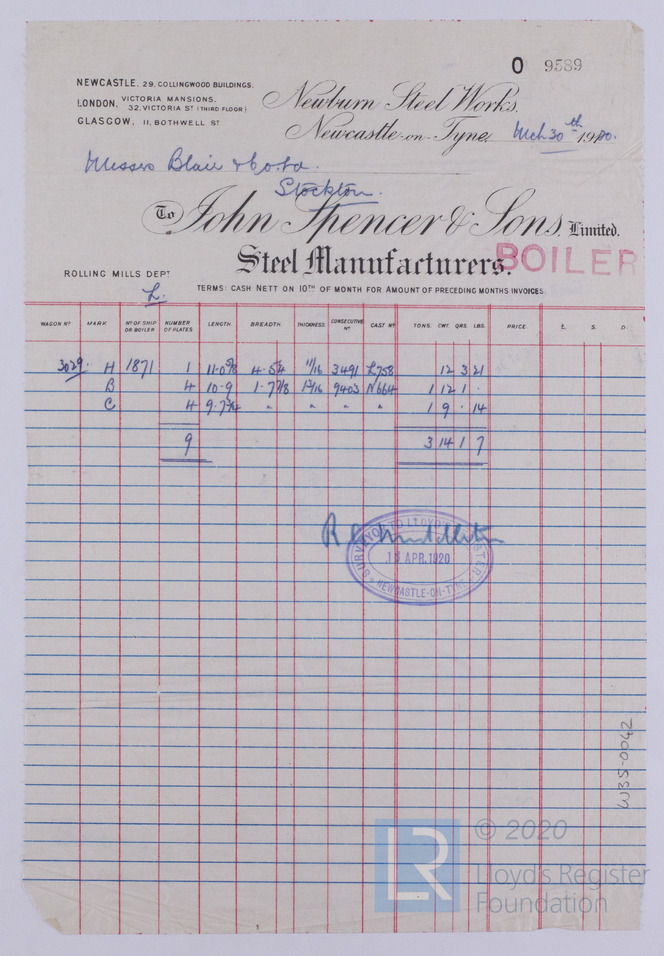 O 9589
NEWCASTLE, 29, COLLINGWOOD BUILDINGS.
LONDON, VICTORIA MANSIONS, 32, VICTORIA ST (THIRD FLOOR)
GLASGOW, 11, BOTHWELL ST
Newburn Steel Works,
Newcastle-on-Tyne, Mch 30th 1920.
Messrs Blair & Co. Ld.
Stockton.
To John Spencer & Sons, Limited.
Steel Manufacturers.
BOILER
ROLLING MILLS DEPT
L.
TERMS: CASH NETT ON 10TH OF MONTH FOR AMOUNT OF PRECEDING MONTHS INVOICES.
WAGON No MARK No OF SHIP OR BOILER NUMBER OF PLATES LENGTH. BREADTH. THICKNESS. CONSECUTIVE No CAST No TONS. CWT. QRS. LBS. PRICE. £. S. D.
3029. H 1871 1 11-0 5/8 4-5 1/4 11/16 3491 L758 12 3 21
B 4 10-9 1-7 7/8 9403 N664 1 12 1 .
C 4 " " " " 1 9 . 14
9 3 14 1 7
SURVEYOR TO LLOYD'S REGISTER
13 APR. 1920
NEWCASTLE-ON-TYNE
W35-0042
LR
© 2020
Lloyd's Register
Foundation